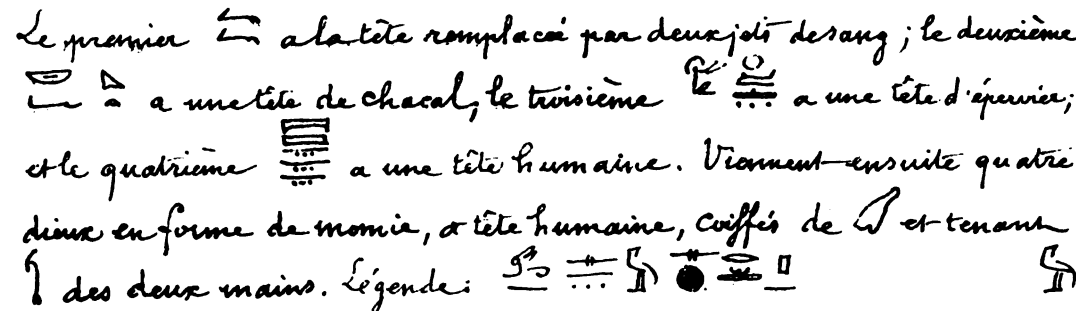 Le premier a la tête remplacée par deux jets de sang ; le deuxième
a une tête de chacal, le troisième a une tête d'épervier ;
et le quatrième a une tête humaine. Viennent ensuite quatre
dieux en forme de momie, a tête humaine, coiffés de et tenant
des deux mains. Légende :